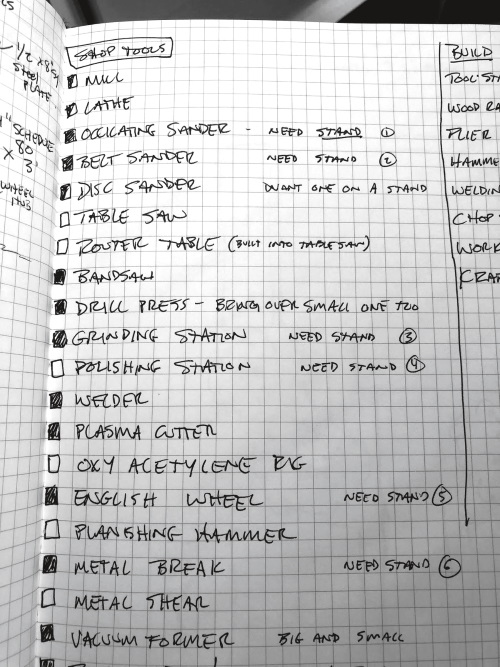 1/2 x 8" SQ
STEEL
PLATE
SCHEDULE
80
x 3'
WHEEL
HUB
SHOP TOOLS
MILL
LATHE
OCCILATING SANDER - NEED STAND 1
BELT SANDER NEED STAND 2
DISC SANDER WANT ONE ON A STAND
TABLE SAW
ROUTER TABLE (BUILT INTO TABLESAW)
BANDSAW
DRILL PRESS - BRING OVER SMALL ONE TOO
GRINDING STATION NEED STAND 3
POLISHING STATION NEED STAND 4
WELDER
PLASMA CUTTER
OXY ACETYLENE RIG
ENGLISH WHEEL NEED STAND 5
PLANISHING HAMMER
METAL BREAK NEED STAND 6
METAL SHEAR
VACUUM FORMER BIG AND SMALL
BUILD
TOOL STA
WOOD RA
PLIER
HAMME
WELDIN
CHOP
WORK
CRAF